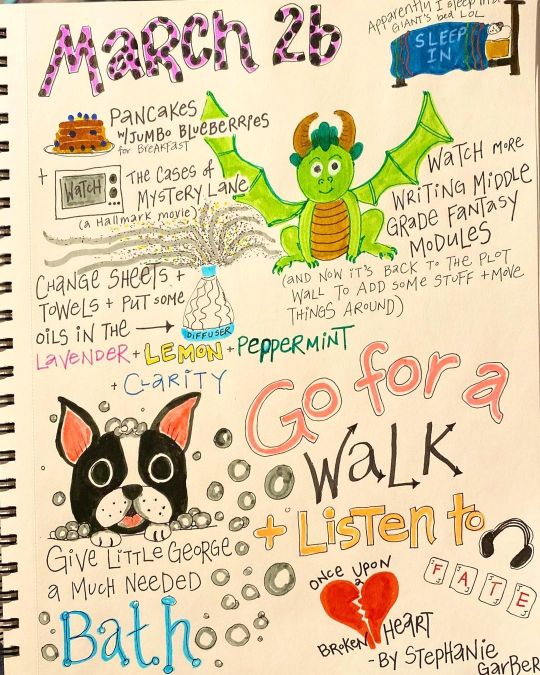 March 26
Apparently I sleep in a
GIANT's bed LOL
SLEEP
IN
PANCAKES
w/JUMBO BLUEBERRIES
for BREAKFAST
+ WATCH THE CASES OF
MYSTERY LANE
(a HALLMARK movie)
WATCH MORE
WRITING MIDDLE
GRADE FANTASY
MODULES
(AND NOW IT'S BACK TO THE PLOT
WALL TO ADD SOME STUFF + MOVE
THINGS AROUND)
CHANGE SHEETS +
TOWELS + PUT SOME
OILS IN THE → DIFFUSER
LAVENDER + LEMON + PEPPERMINT
+ CLARITY
Go for a
WALK
+ LISTEN to
FATE
ONCE UPON
a
BROKEN HEART
- BY STEPHANIE
GARBER
GIVE LITTLE GEORGE
a MUCH NEEDED
Bath